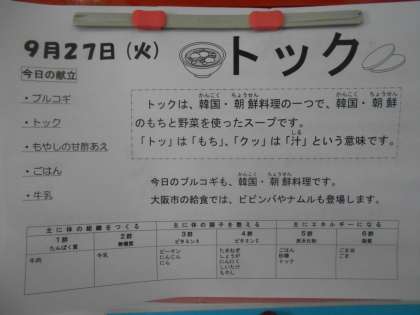 9月27日（火）
トック
今日の献立
・プルコギ
・トック
・もやしの甘酢あえ
・ごはん
・牛乳
トックは、韓国・朝鮮料理の一つで、韓国・朝鮮
のもちと野菜を使ったスープです。
「トッ」は「もち」、「クッ」は「汁」という意味です。
今日のプルコギも、韓国・朝鮮料理です。
大阪市の給食では、ビビンバやナムルも登場します。
主に体の組織をつくる
主に体の調子を整える
主にエネルギーになる
1群
2群
3群
4群
5群
6群
たんぱく質
無機質
ビタミンA
ビタミンC
炭水化物
脂質
牛肉
牛乳
ピーマン
にんじん
にら
たまねぎ
しょうが
にんにく
しいたけ
もやし
ごはん
砂糖
トック
ごま油
ごま